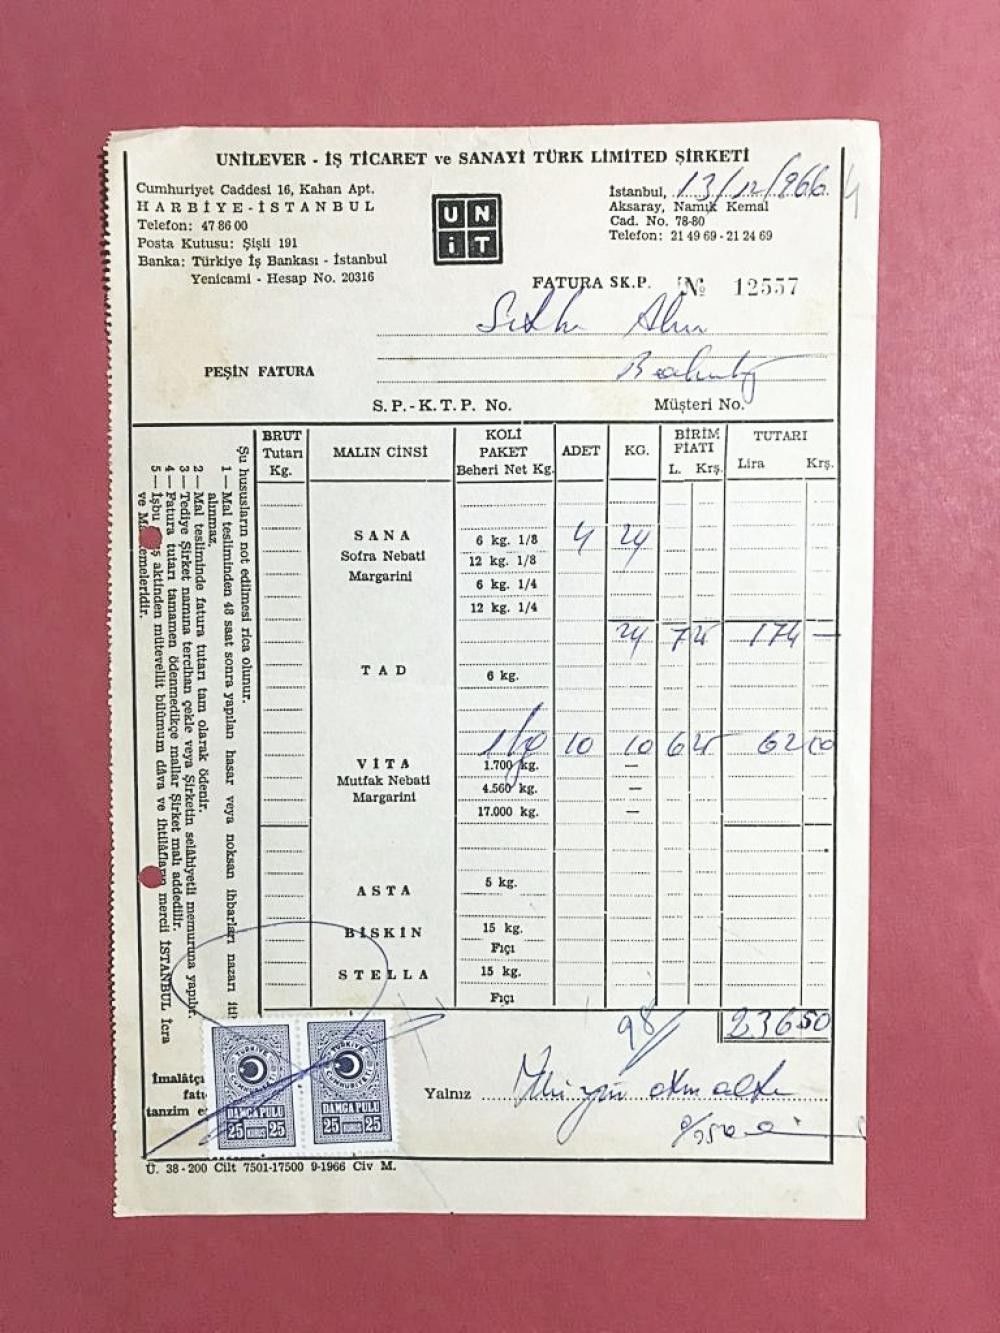 UNİLEVER - İŞ TİCARET ve SANAYİ TÜRK LİMİTED ŞİRKETİ
Cumhuriyet Caddesi 16, Kahan Apt.
HARBİYE-İSTANBUL
Telefon: 47 86 00
Posta Kutusu: Şişli 191
Banka: Türkiye İş Bankası - İstanbul
Yenicami - Hesap No. 20316
UN
İT
İstanbul, 13/12/966
Aksaray, Namık Kemal
Cad. No. 78-80
Telefon: 21 49 69 - 21 24 69
FATURA SK.P. № 12557
PEŞİN FATURA
S.P.-K.T.P. No. Müşteri No.
BRUT Tutarı Kg. MALIN CİNSİ KOLİ PAKET Beheri Net Kg. ADET KG. BİRİM FİATI L. Krş. TUTARI Lira Krş.
SANA 6 kg. 1/8 4 24
Sofra Nebati 12 kg. 1/8
Margarini 6 kg. 1/4
12 kg. 1/4
24 7 25 174 —
TAD 6 kg.
10 10 6 25 62 50
VİTA 1.700 kg. —
Mutfak Nebati 4.560 kg. —
Margarini 17.000 kg. —
ASTA 5 kg.
BİSKİN 15 kg.
Fıçı
STELLA 15 kg.
Fıçı
236 50
Yalnız
Şu hususların not edilmesi rica olunur.
1 — Mal tesliminden 48 saat sonra yapılan hasar veya noksan ihbarları nazarı iti
alınmaz.
2 — Mal tesliminde fatura tutarı tam olarak ödenir.
3 — Tediye Şirket namına tercihan çekle veya Şirketin selâhiyetli memuruna yapılır.
4 — Fatura tutarı tamamen ödenmedikçe mallar Şirket malı addedilir.
5 — İşbu aktinden mütevellit bilûmum dâva ve ihtilâfların mercii İSTANBUL İcra
ve Ma emeleridir.
İmalâtçı
fatu
tanzim e
TÜRKİYE CUMHURİYETİ
DAMGA PULU
25 KURUŞ 25
TÜRKİYE CUMHURİYETİ
DAMGA PULU
25 KURUŞ 25
Ü. 38-200 Cilt 7501-17500 9-1966 Civ M.